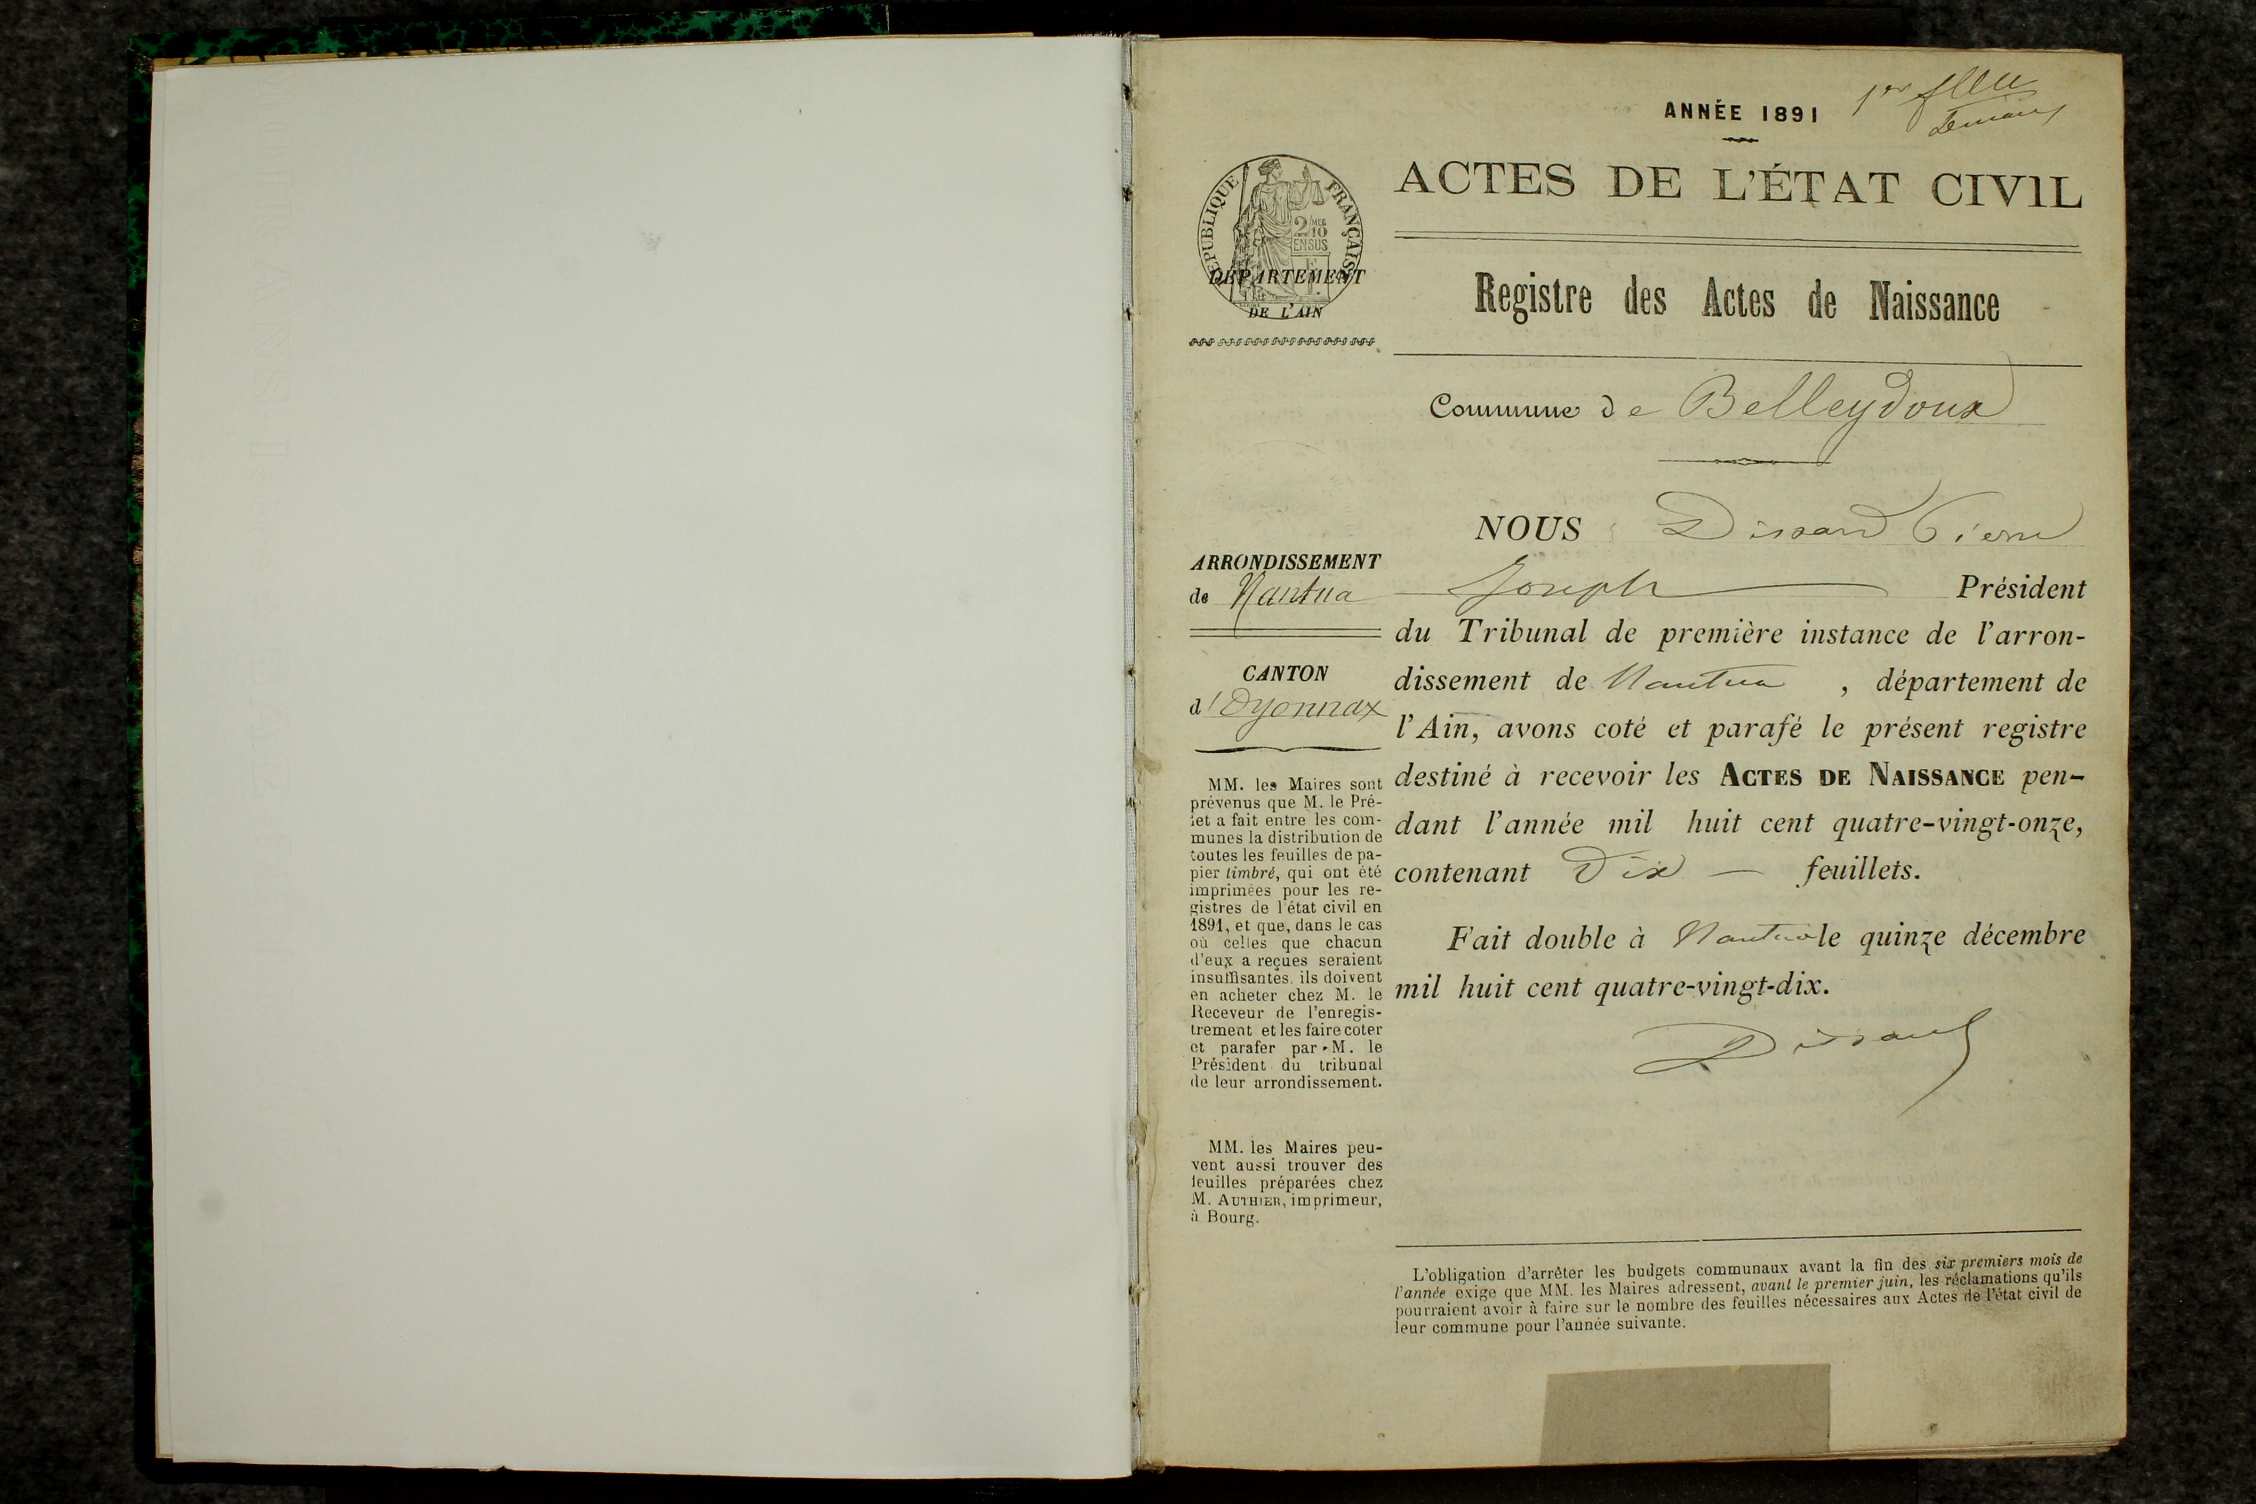 ANNÉE 1891
1er
ACTES DE L'ÉTAT CIVIL
RÉPUBLIQUE FRANÇAISE
2/10
EN SUS
DÉPARTEMENT
DE L'AIN
Registre des Actes de Naissance
Commune de Belleydoux
ARRONDISSEMENT
de Nantua
CANTON
d'Oyonnax
MM. les Maires sont
prévenus que M. le Pré-
fet a fait entre les com-
munes la distribution de
toutes les feuilles de pa-
pier timbré, qui ont été
imprimées pour les re-
gistres de l'état civil en
1891, et que, dans le cas
où celles que chacun
d'eux a reçues seraient
insuffisantes, ils doivent
en acheter chez M. le
Receveur de l'enregis-
trement et les faire coter
et parafer par M. le
Président du tribunal
de leur arrondissement.
MM. les Maires peu-
vent aussi trouver des
feuilles préparées chez
M. AUTHIER, imprimeur,
à Bourg.
NOUS Dissard Pierre
Joseph Président
du Tribunal de première instance de l'arron-
dissement de Nantua , département de
l'Ain, avons coté et parafé le présent registre
destiné à recevoir les ACTES DE NAISSANCE pen-
dant l'année mil huit cent quatre-vingt-onze,
contenant Dix — feuillets.
Fait double à Nantua le quinze décembre
mil huit cent quatre-vingt-dix.
Dissard
L'obligation d'arrêter les budgets communaux avant la fin des six premiers mois de
l'année exige que MM. les Maires adressent, avant le premier juin, les réclamations qu'ils
pourraient avoir à faire sur le nombre des feuilles nécessaires aux Actes de l'état civil de
leur commune pour l'année suivante.